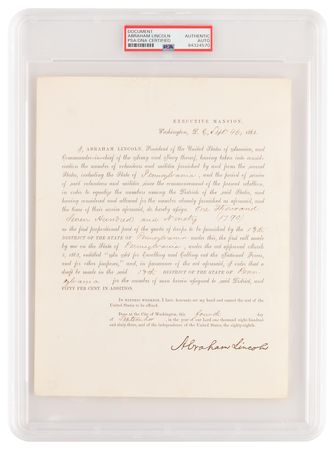 DOCUMENT
ABRAHAM LINCOLN
PSA/DNA CERTIFIED
AUTHENTIC
AUTO
84324570
PSA
EXECUTIVE MANSION,
Washington, D. C., Sept 4th, 1863.
I, ABRAHAM LINCOLN, President of the United States of America, and
Commander-in-chief of the Army and Navy thereof, having taken into consid-
eration the number of volunteers and militia furnished by and from the several
States, including the State of Pennsylvania, and the period of service
of said volunteers and militia since the commencement of the present rebellion,
in order to equalize the numbers among the Districts of the said States, and
having considered and allowed for the number already furnished as aforesaid, and
the time of their service aforesaid, do hereby assign One Thousand
Seven Hundred and Ninety (1790)
as the first proportional part of the quota of troops to be furnished by the 19th
DISTRICT OF THE STATE OF Pennsylvania under this, the first call made
by me on the State of Pennsylvania, under the act approved March
3, 1863, entitled "An Act for Enrolling and Calling out the National Forces,
and for other purposes," and, in pursuance of the act aforesaid, I order that a
draft be made in the said 19th DISTRICT OF THE STATE OF Penn-
sylvania for the number of men herein assigned to said District, and
FIFTY PER CENT. IN ADDITION.
IN WITNESS WHEREOF, I have hereunto set my hand and caused the seal of the
United States to be affixed.
Done at the City of Washington, this fourth day
of September, in the year of our Lord one thousand eight hundred
and sixty-three, and of the independence of the United States, the eighty-eighth.
Abraham Lincoln